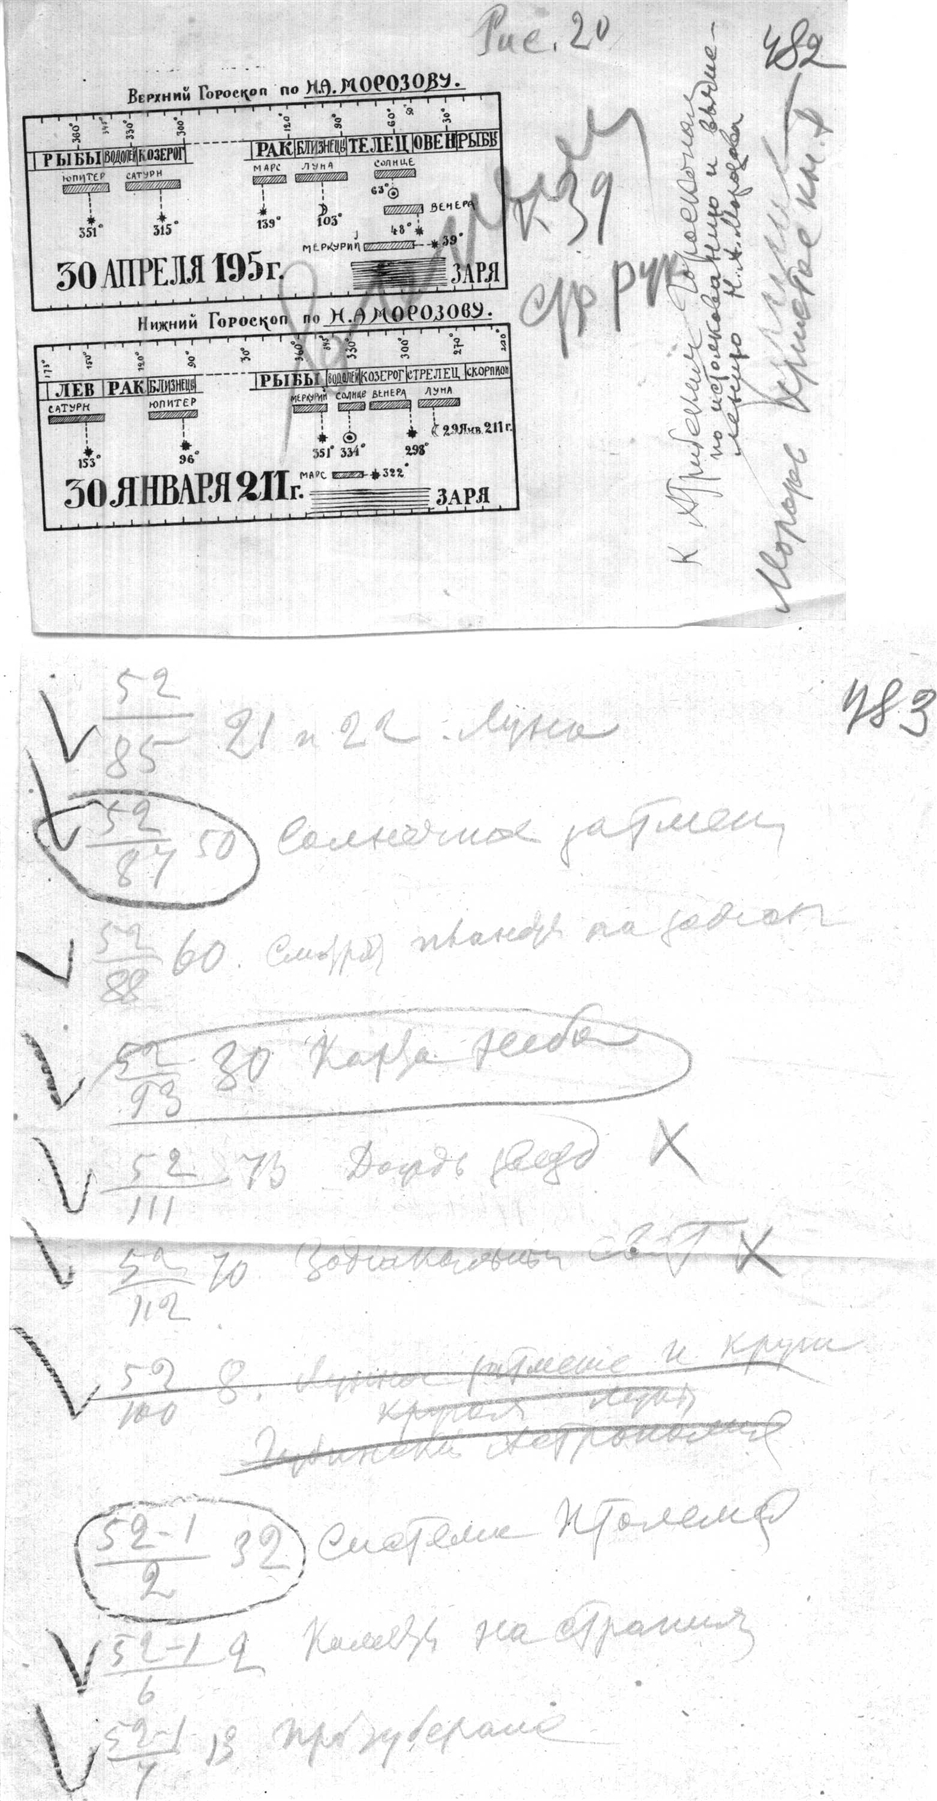 Рис. 20
482
Верхний Гороскоп по Н.А. МОРОЗОВУ.
360° 345° 330° 300° 120° 90° 60° 50° 30°
РЫБЫ ВОДОЛЕЙ КОЗЕРОГ РАК БЛИЗНЕЦЫ ТЕЛЕЦ ОВЕН РЫБЫ
ЮПИТЕР САТУРН МАРС ЛУНА СОЛНЦЕ
63°
ВЕНЕРА
351° 315° 139° 103° 48°
МЕРКУРИЙ 39°
30 АПРЕЛЯ 195 г. ЗАРЯ
т. 39
стр рук
Нижний Гороскоп по Н.А МОРОЗОВУ.
173° 150° 120° 90° 30° 360° 345° 330° 300° 270°
ЛЕВ РАК БЛИЗНЕЦЫ РЫБЫ ВОДОЛЕЙ КОЗЕРОГ СТРЕЛЕЦ СКОРПИОН
САТУРН ЮПИТЕР МЕРКУРИЙ СОЛНЦЕ ВЕНЕРА ЛУНА
29 Янв. 211 г.
153° 96° 351° 334° 298°
МАРС 322°
30 ЯНВАРЯ 211 г. ЗАРЯ
К Атрибским Гороскопам
по истолкованию и вычис-
лению Н.А. Морозова
Морозов Христос
483
52/85 21 и 22 Луна
52/87 50 Солнечное затмен
52/88 60.
52/93 30 Карта неба
52/111 73 Дождь звезд X
52/112 70 Зодиакальный свет X
52/100 8. Лунное затмение и круги
Астрономия
52-1/2 32 Система Птолемея
52-1/6 9 на страниц
52-1/7 13 протуберанс